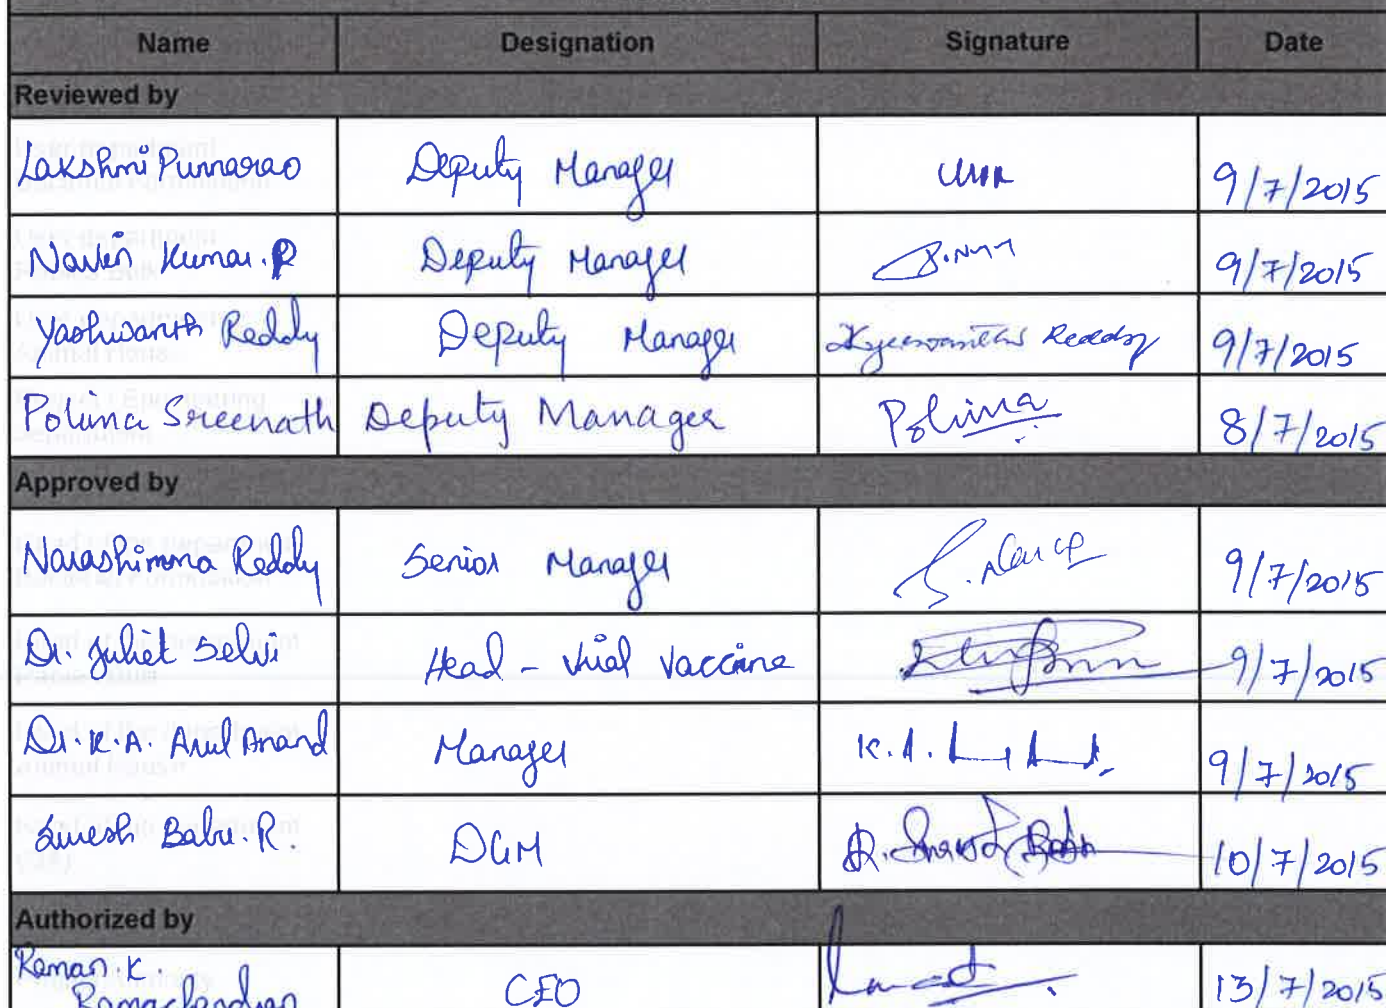 Name Designation Signature Date
Reviewed by
Lakshmi Punnarao Deputy Manager 9/7/2015
Navin Kumar. P Deputy Manager 9/7/2015
Yashwanth Reddy Deputy Manager Reddy 9/7/2015
Polima Sreenath Deputy Manager Polima 8/7/2015
Approved by
Narashimma Reddy Senior Manager 9/7/2015
Dr. Juliet Selvi Head - Viral Vaccine 9/7/2015
Dr. K.A. Arul Anand Manager K.A. 9/7/2015
Suresh Babu. R. DGM 10/7/2015
Authorized by
Raman. K. CEO 13/7/2015
Ramachandran